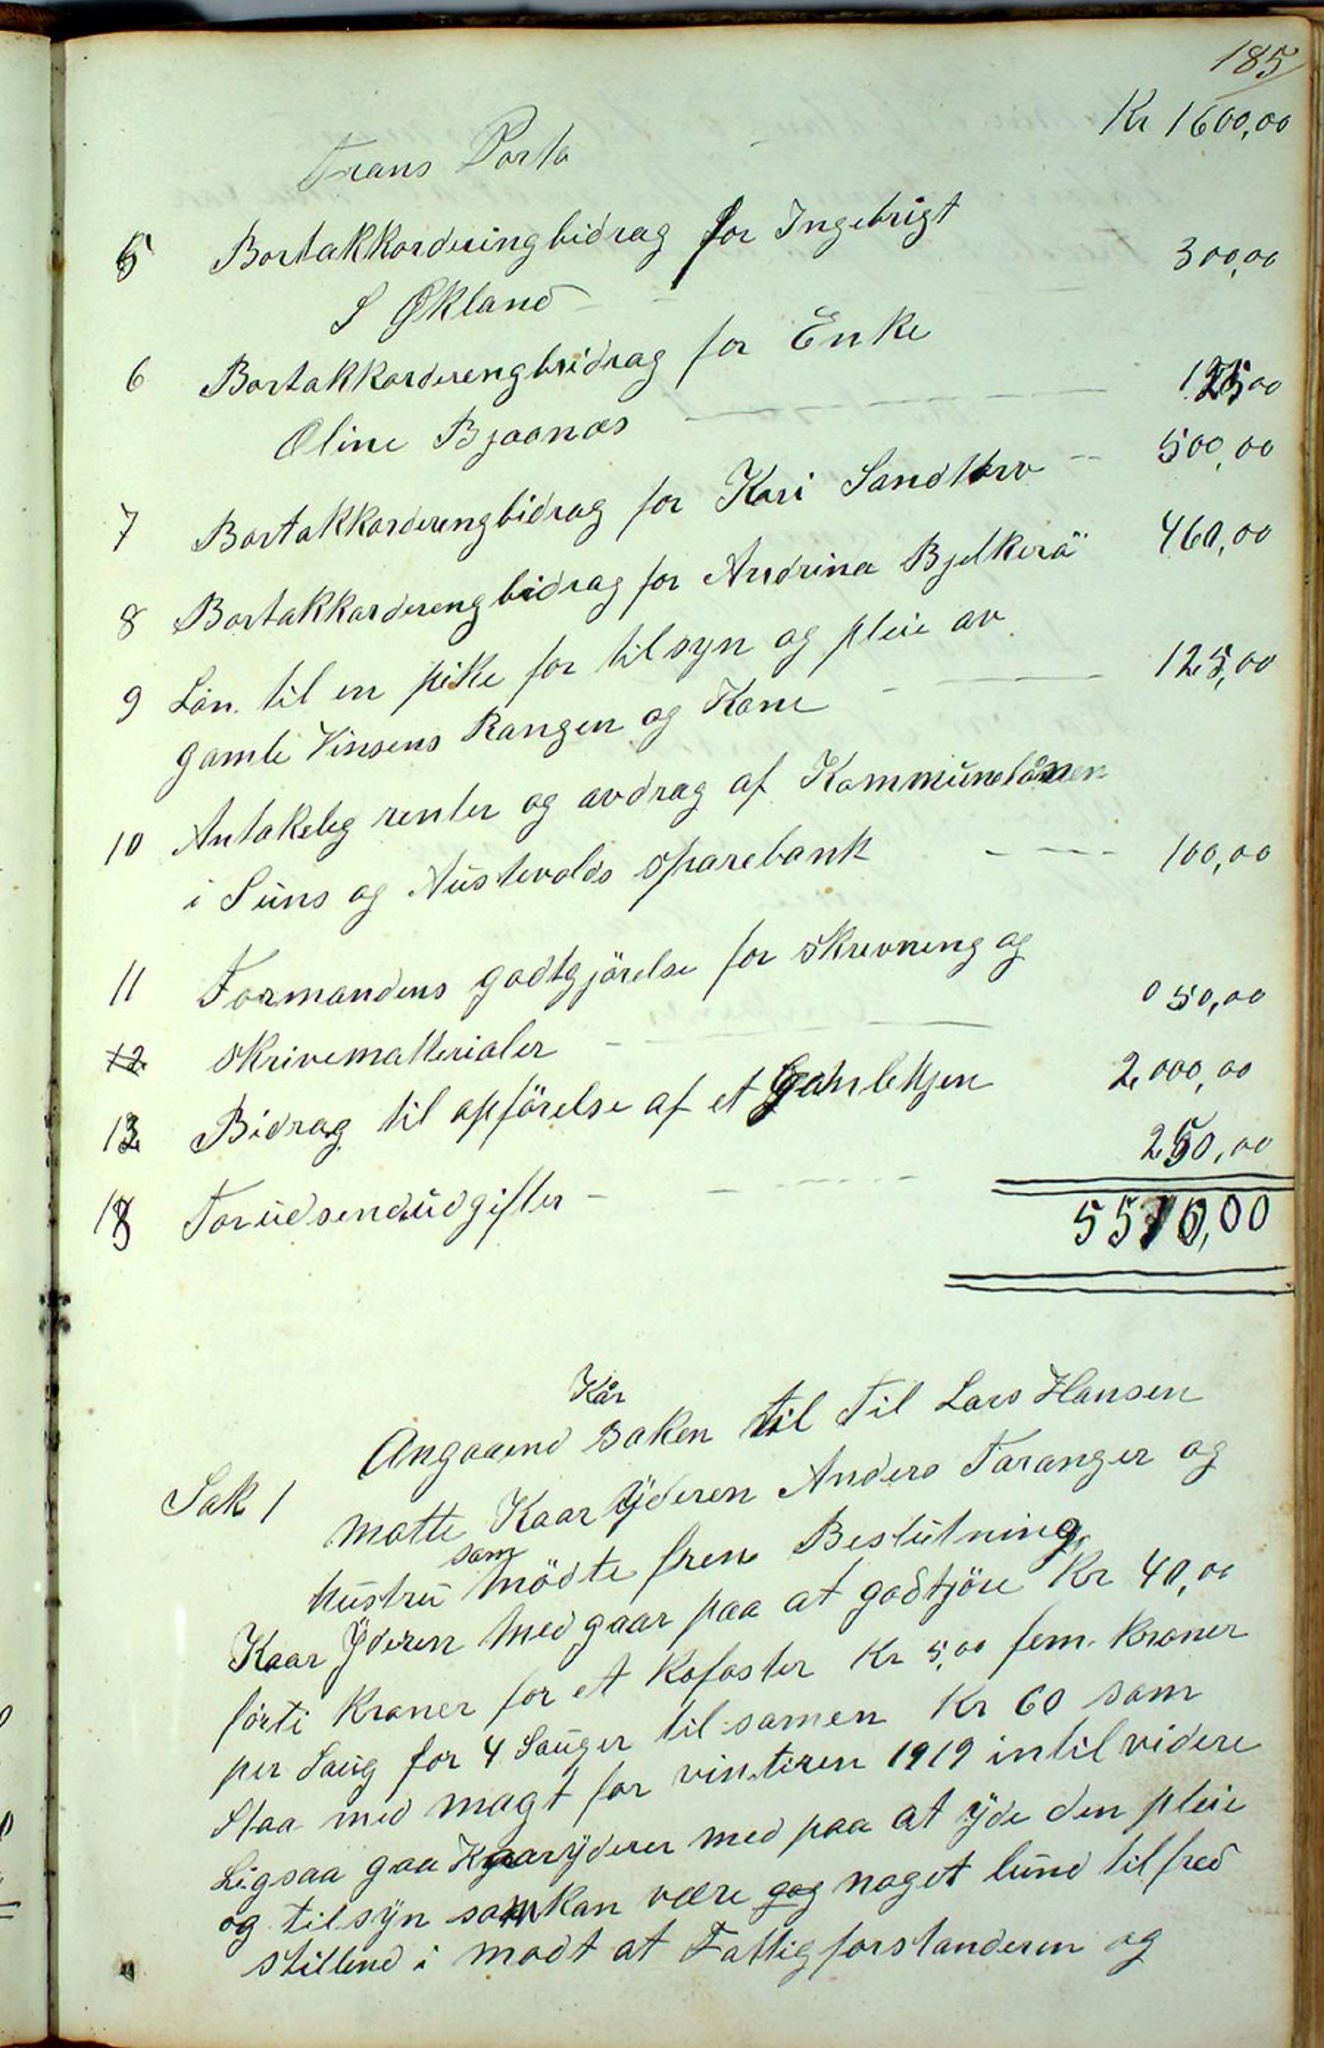 185
Kr 1600,00
Trans Porto
5 Bortakkorderingbidrag for Ingebrigt
S Økland 300,00
6 Bortakkorderengbidrag for Enke
Oline Bjaanæs 125,00
7 Bortakkorderengbidrag for Kari Sandtorv 500,00
8 Bortakkorderengbidrag for Andrina Bjelkerö 460,00
9 Lön til en pike for tilsyn og pleie av
gamle Vinsens Rangen og Kone 125,00
10 Antakelig renter og avdrag af Kommunelånen
i Suns og Austevolds sparebank 100,00
11 Formandens godtgjörelse for skrevneng og
12 skrivematterialer 50,00
12 Bidrag til opförelse af et Gamlehjen 2,000,00
13 Forudsendudgifter 250,00
5510,00
Kår
Sak 1 Angaaend saken til Til Lars Hansen
møtte Kaar Yderen Anders Taranger og
som
hustru mödte frem Beslutning
Kaar Yderen med gaar paa at godtjöre Kr 40,00
förti Kroner for et Kofoster Kr 5,00 fem Kroner
per Saug for 4 Sauger til samen Kr 60 som
Staa med magt for vinteren 1919 intil videre
Ligsaa gaa Kaaryderer med paa at yde den pleie
og tilsyn som kan være og noget lund til fred
stillend i modt at Fattigforstanderen og